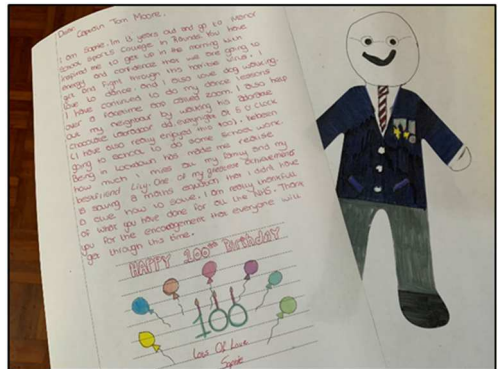 Dear Captain Tom Moore.
I am Sophie. Im 13 years old and go to Manor
school sports College in Raunds. You have
inspired me to get up in the morning with
energy and confidence that we are going to
get and fight through this horrible virus. I
love to dance. And I also love dog walking.
I have continued to do my dance lessons
over a facetime app called zoom. I also help
out my neighbour by walking his adorable
chocolate labrador at 6 O CLOCK
(I have also really enjoyed this walk). I been
going to school to do some school work.
Being in Lockdown has made me realise
how much I miss all my family and my
bestfriend Lily. One of my greatest achievements
is solving a maths equation that I didnt have
a clue how to solve. I am really thankful
of what you have done for all the NHS. Thank
you for the encouragement that everyone will
get through this time.
HAPPY 100th Birthday
100
Lots Of Love
Sophie